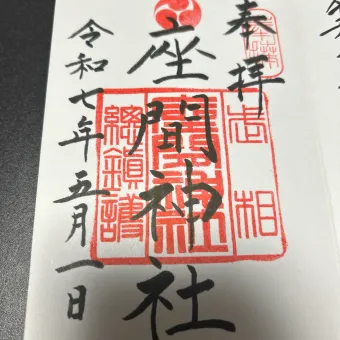 奉拝
座間神社
令和七年五月一日
相武
座間神社
總鎮護